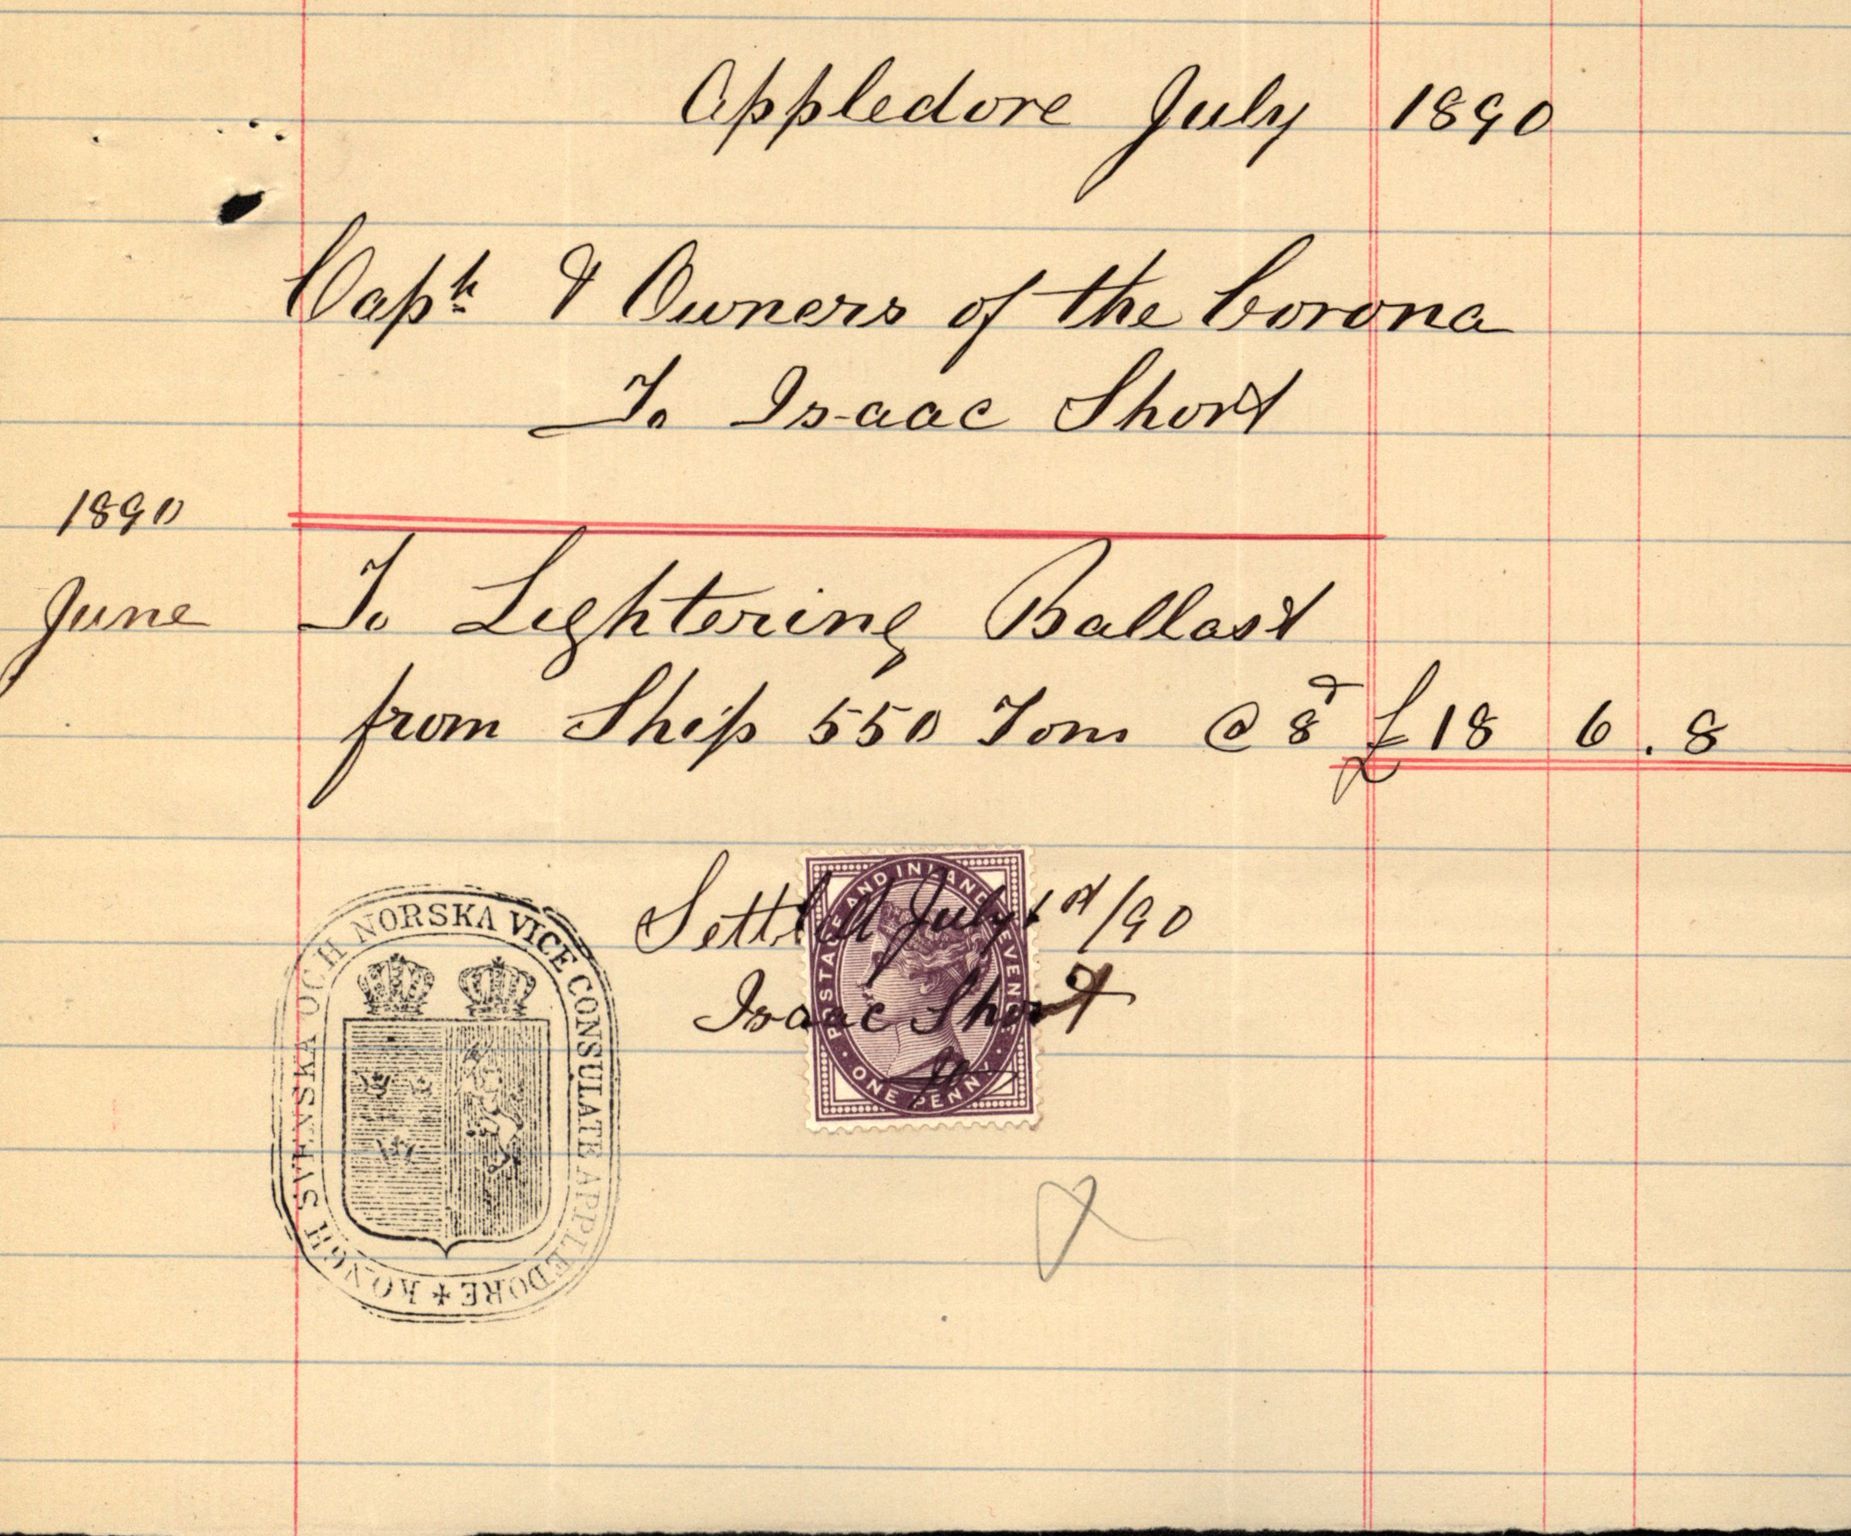 Appledore July 1890
Capt & Owners of the Corona
To Isaac Short
1890
June To Lightering Ballast
from Ship 550 Tons @ 8d £18 6.8
Settled July 1st/90
Isaac Short
KONGL SVENSKA OCH NORSKA VICE CONSULATE APPLEDORE
POSTAGE AND INLAND REVENUE
ONE PENNY